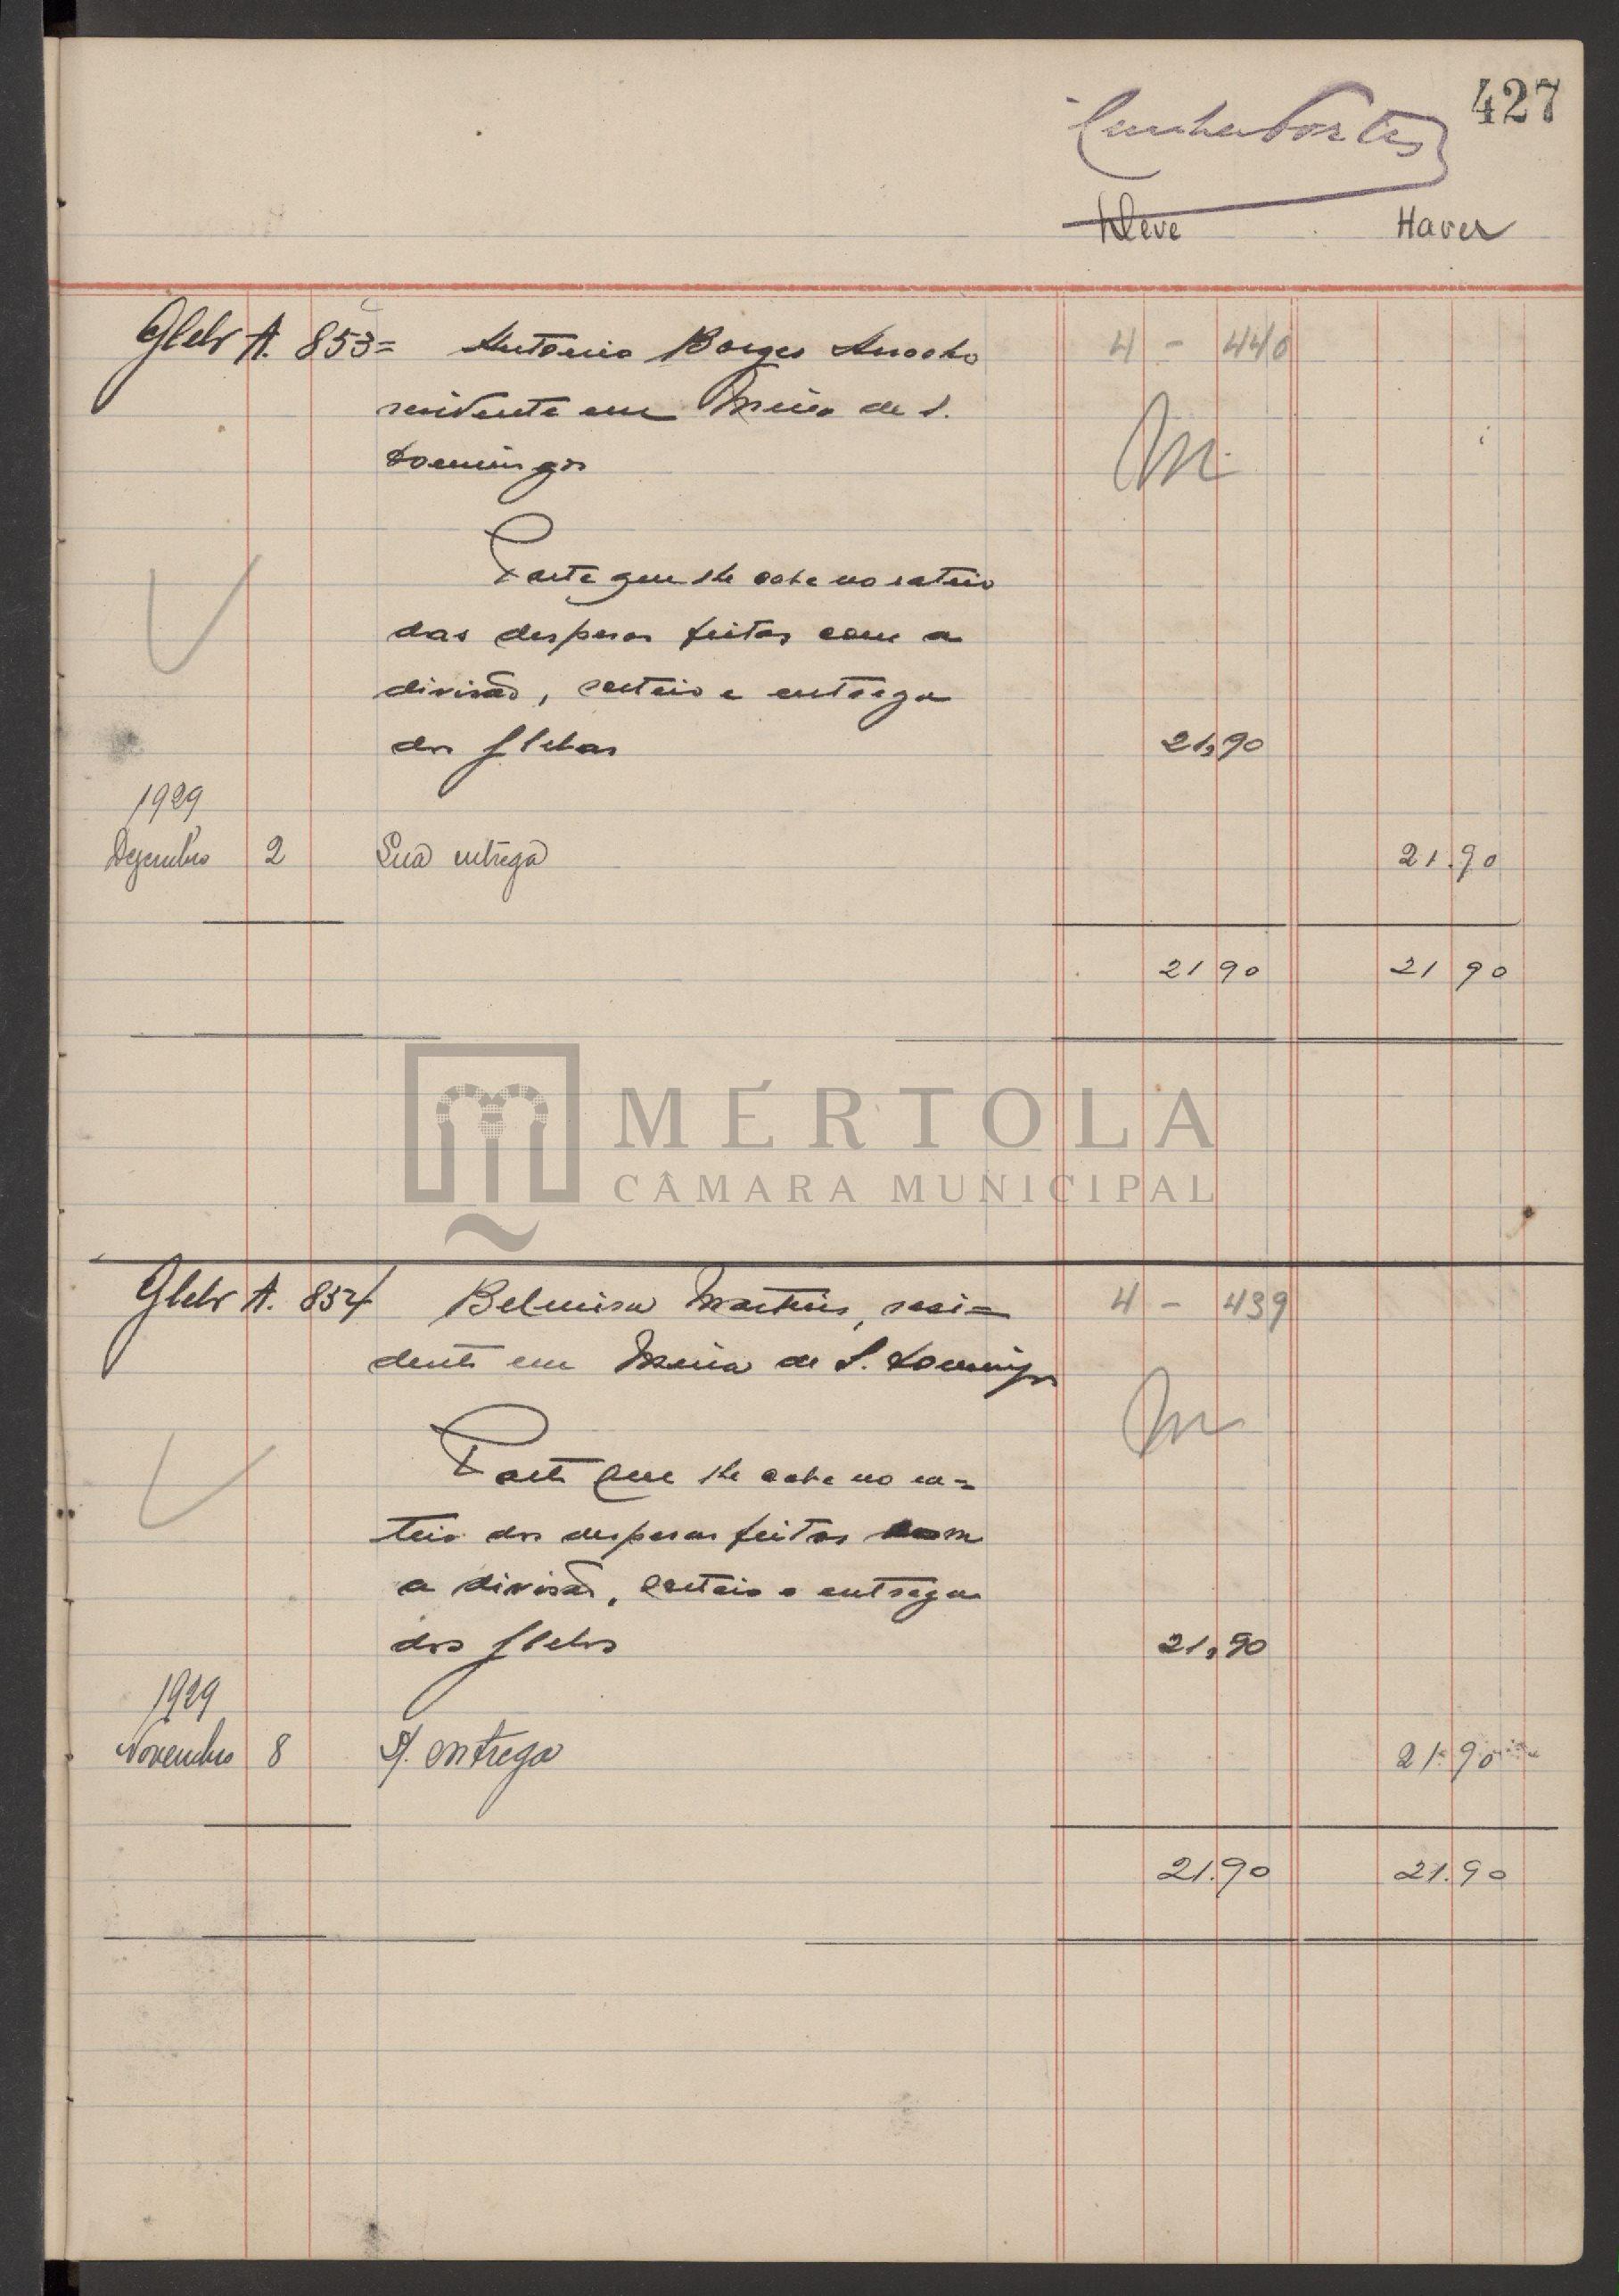 427
Cunha Fortes
Deve Haver
Gleba A. 853= Antonio Borges 4 - 440
residente em Mina de S. M
Domingos
Parte que lhe cabe no rateio
das despesas feitas com a
divisão, sorteio e entrega
das glebas 21,90
1929
Dezembro 2 Sua entrega 21.90
21 90 21 90
MÉRTOLA
CÂMARA MUNICIPAL
Gleba A. 854 Belmira Martins, resi=
4 - 439
dente em Mina de S. Domingos
M
Parte que lhe cabe no ra=
teio das despesas feitas com
a divisão, sorteio e entrega
das glebas 21,90
1929
Novembro 8 S/. entrega 21.90
21.90 21.90